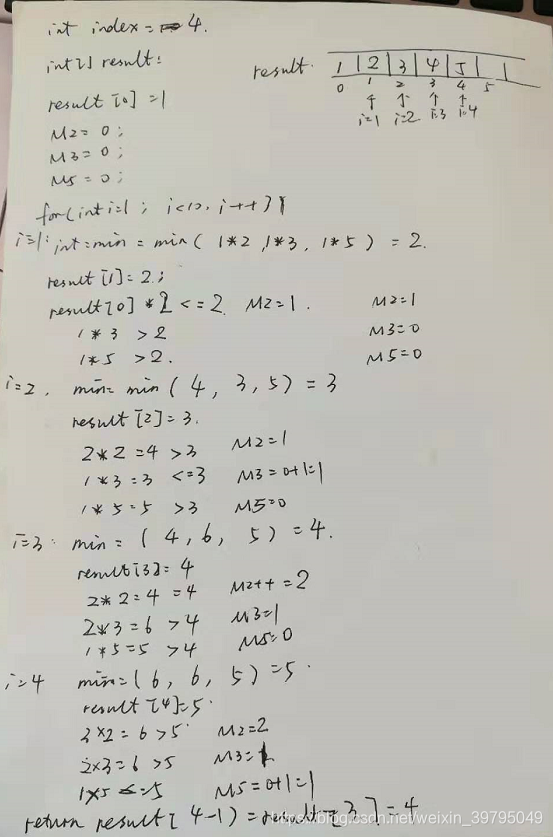 int index = 4.
int[] result;
result. 1 | 2 | 3 | 4 | 5 |
0 1 2 3 4 5
↑ ↑ ↑ ↑
i=1 i=2 i=3 i=4
result [0] = 1
M2 = 0;
M3 = 0;
M5 = 0;
for(int i=1; i<10, i++){
i=1: int = min = min( 1*2, 1*3, 1*5 ) = 2.
result [1] = 2;
result[0] * 2 <= 2. M2=1. M2=1
1 * 3 > 2 M3=0
1 * 5 > 2. M5=0
i=2. min= min ( 4, 3, 5 ) = 3
result [2] = 3.
2*2 =4 >3 M2=1
1*3 =3 <=3 M3=0+1=1
1*5 =5 >3 M5=0
i=3: min = ( 4, 6, 5 ) = 4.
result[3]= 4
2*2=4 =4 M2++ =2
2*3=6 >4 M3=1
1*5=5 >4 M5=0
i=4 min=( 6, 6, 5 ) =5.
result [4]=5
3×2= 6 >5 M2=2
2×3=6 >5 M3=1
1×5 <=5 M5=0+1=1
return result[ 4-1 ) = result [ 3 ] = 4
https://blog.csdn.net/weixin_39795049